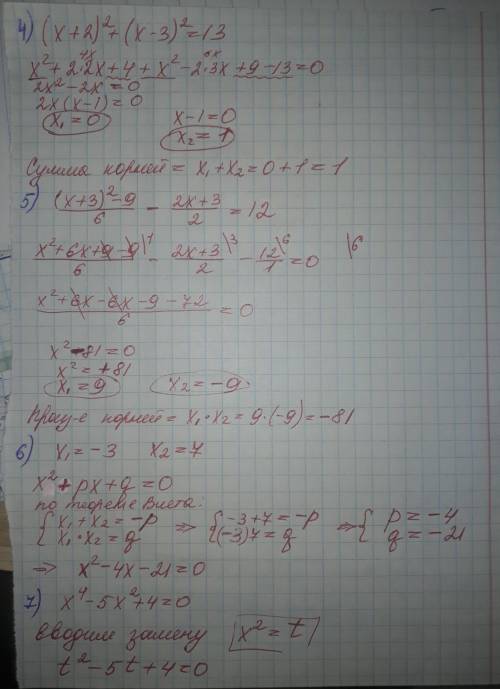 4) (x+2)²+(x-3)²=13
4x 6x
x²+2·2x+4+x²-2·3x+9-13=0
2x²-2x=0
2x(x-1)=0
x₁=0 x-1=0
x₂=1
Сумма корней = x₁+x₂=0+1=1
5) (x+3)²-9/6 - 2x+3/2 = 12
x²+6x+9-9\¹/6 - 2x+3\³/2 - 12\⁶/1 = 0 \6
x²+6x-6x-9-72/6 = 0
x²-81=0
x²=+81
x₁=9 x₂=-9.
Произ-е корней = x₁·x₂=9·(-9)=-81
6) x₁=-3 x₂=7
x²+px+q=0
по теореме Виета:
{x₁+x₂=-p ⇒ {-3+7=-p ⇒ {p=-4
x₁·x₂=q (-3)7=q q=-21
⇒ x²-4x-21=0
7) x⁴-5x²+4=0
вводим замену x²=t
t²-5t+4=0